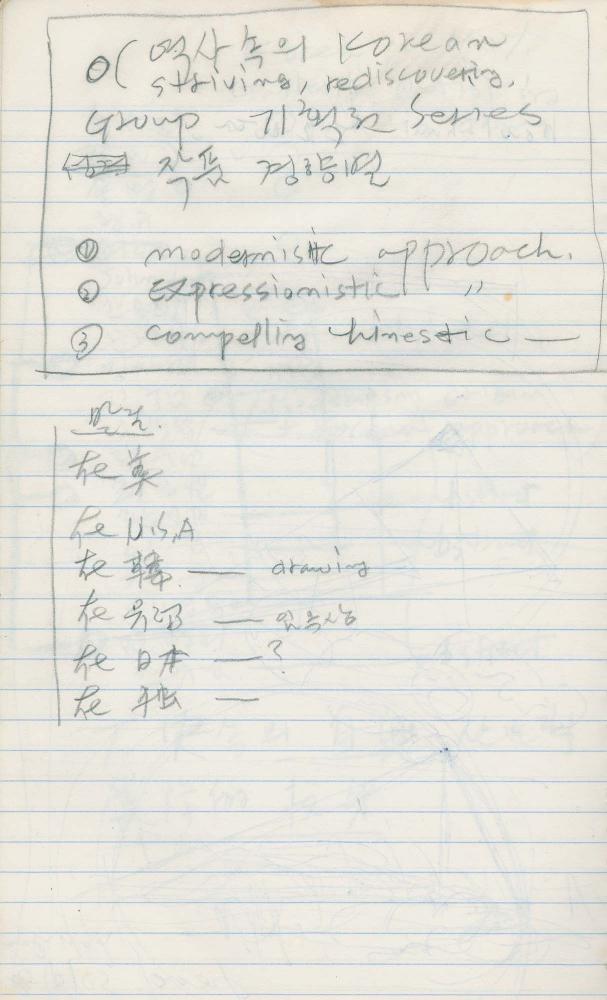 O( 역사 속의 Korean
striving, rediscovering,
Group 기획전 Series
작품 경향별
① modernistic approach.
② Expressionistic 〃
③ compelling kinestic —
在英
在 U.S.A
在韓 — drawing
在 유럽 —
在日本 — ?
在 —